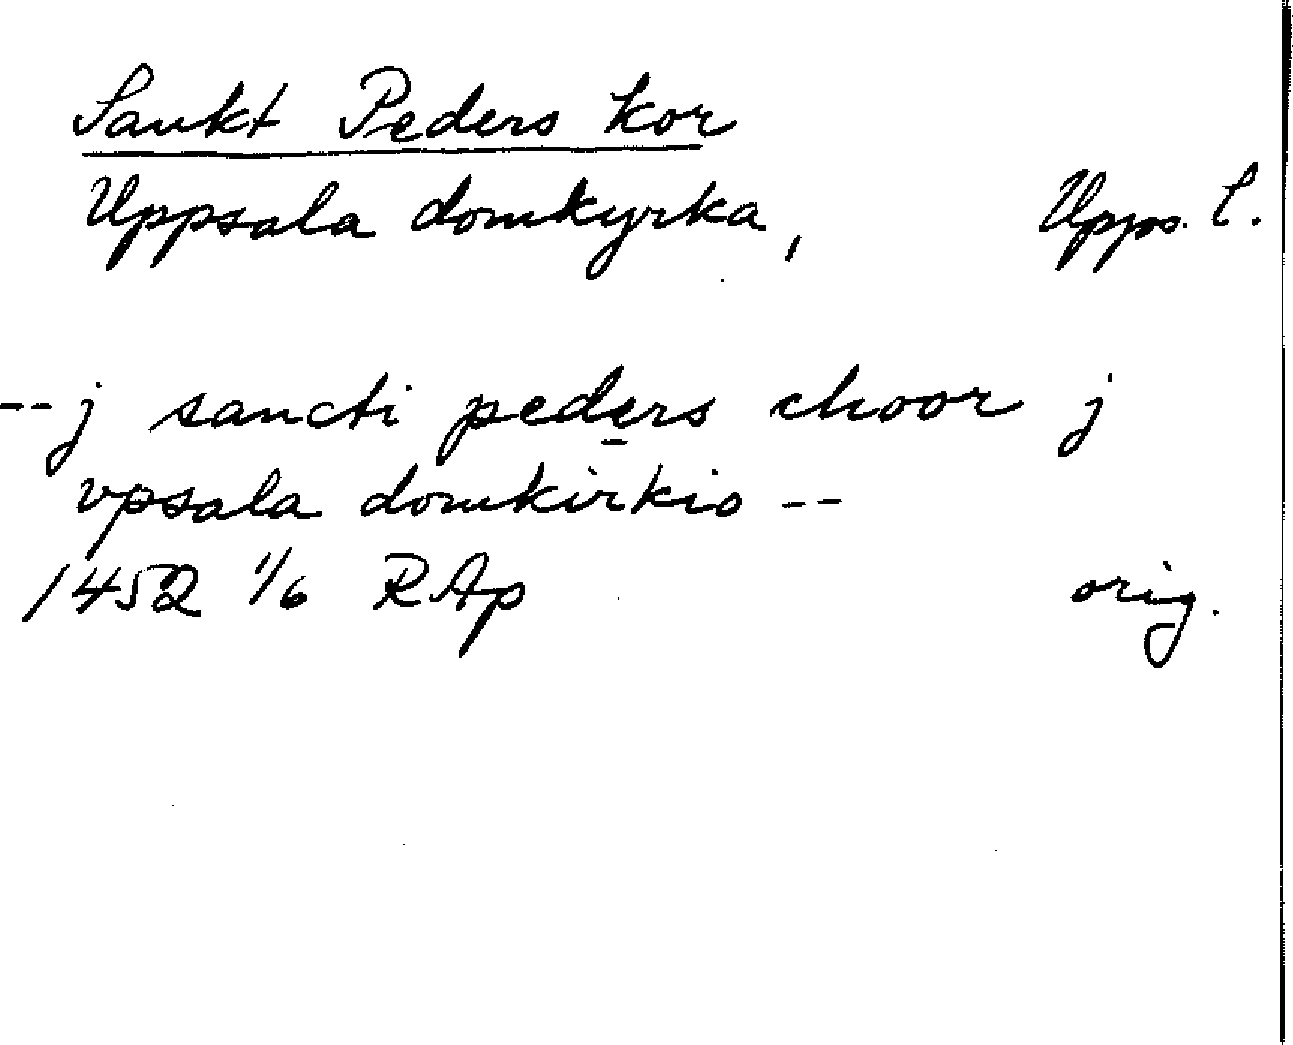 Sankt Peders kor
Uppsala domkyrka, Upps. l.
-- j sancti peders choor j
vpsala domkirkio --
1452 1/6 RAp orig.